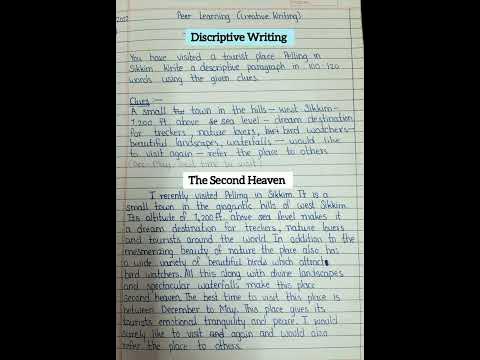 2022
Peer Learning (Creative Writing)
Discriptive Writing
You have visited a tourist place Pelling in
Sikkim. Write a descriptive paragraph in 100-120
words using the given clues.
Clues :-
A small town in the hills - west Sikkim -
7,200 ft. above sea level - dream destination
for treckers, nature lovers, bird watchers -
beautiful landscapes, waterfalls - would like
to visit again - refer the place to others
(Dec-May, best time to visit)
The Second Heaven
I recently visited Pelling in Sikkim. It is a
small town in the gragantic hills of west Sikkim.
Its altitude of 7,200 ft. above sea level makes it
a dream destination for treckers, nature lovers
and tourists around the world. In addition to the
mesmerizing beauty of nature the place also has
a wide variety of beautiful birds which attract
bird watchers. All this along with divine landscapes
and spectacular waterfalls make this place
second heaven. The best time to visit this place is
between December to May. This place gives its
tourists emotional tranquility and peace. I would
surely like to visit again and would also
refer the place to others.